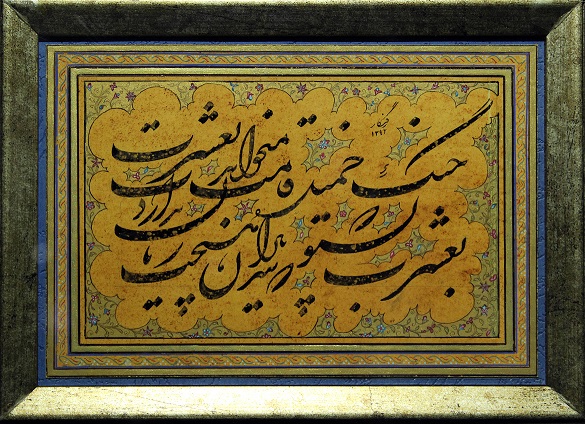 چنگ خمیده قامت میخواندت بعشرت
بشنو که پند پیران هیچت زیان ندارد